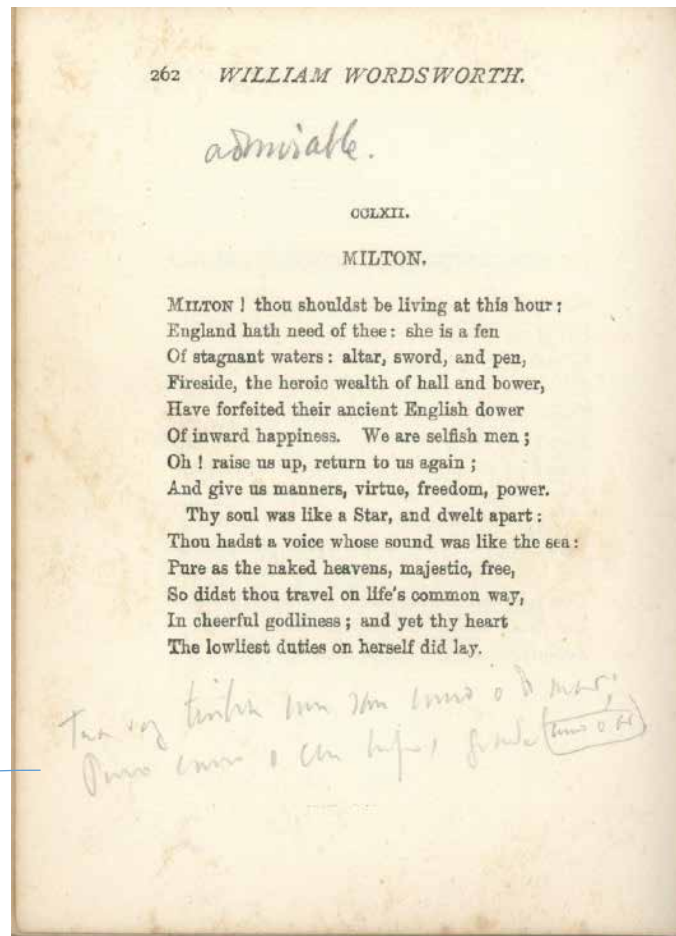 262 WILLIAM WORDSWORTH.
admirable.
CCLXII.
MILTON.
MILTON ! thou shouldst be living at this hour :
England hath need of thee : she is a fen
Of stagnant waters : altar, sword, and pen,
Fireside, the heroic wealth of hall and bower,
Have forfeited their ancient English dower
Of inward happiness. We are selfish men ;
Oh ! raise us up, return to us again ;
And give us manners, virtue, freedom, power.
Thy soul was like a Star, and dwelt apart :
Thou hadst a voice whose sound was like the sea :
Pure as the naked heavens, majestic, free,
So didst thou travel on life's common way,
In cheerful godliness ; and yet thy heart
The lowliest duties on herself did lay.
Tua voz tinha um som como o do mar;
Puro como o céu